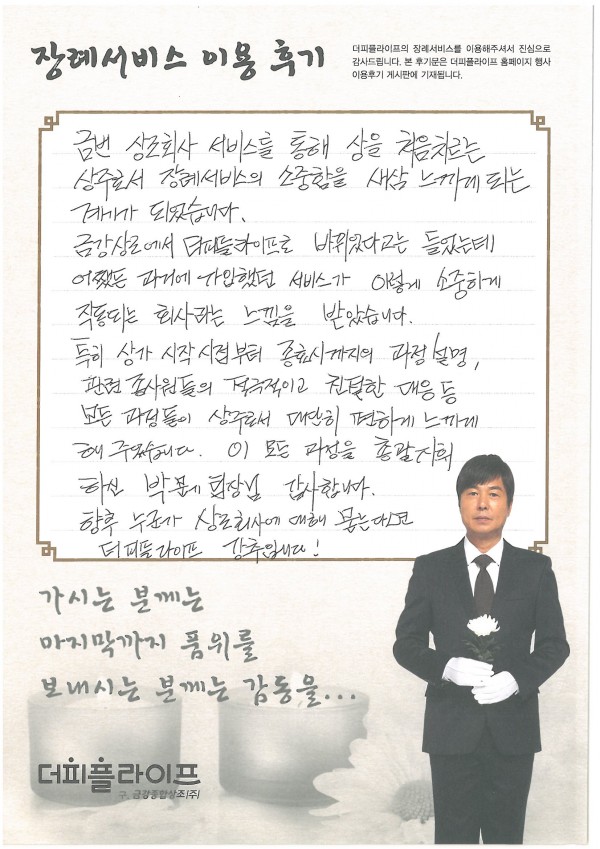 장례서비스 이용 후기
더피플라이프의 장례서비스를 이용해주셔서 진심으로
감사드립니다. 본 후기문은 더피플라이프 홈페이지 행사
이용후기 게시판에 기재됩니다.
금번 상조회사 서비스를 통해 상을 처음치르는
상주로서 장례서비스의 소중함을 새삼 느끼게 되는
계기가 되었습니다.
금강상조에서 더피플라이프로 바뀌었다고는 들었는데
어쨌든 과거에 가입했던 서비스가 이렇게 소중하게
작동되는 회사라는 느낌을 받았습니다.
특히 상가 시작시점부터 종료시까지의 과정설명,
관련 종사원들의 적극적이고 친절한 대응 등
모든 과정들이 상주로서 대단히 편하게 느끼게
해 주었습니다. 이 모든 과정을 총괄지휘
하신 박 팀장님 감사합니다.
향후 누군가 상조회사에 대해 묻는다고
더피플라이프 강추입니다!
가시는 분께는
마지막까지 품위를
보내시는 분께는 감동을...
더피플라이프
구. 금강종합상조(주)